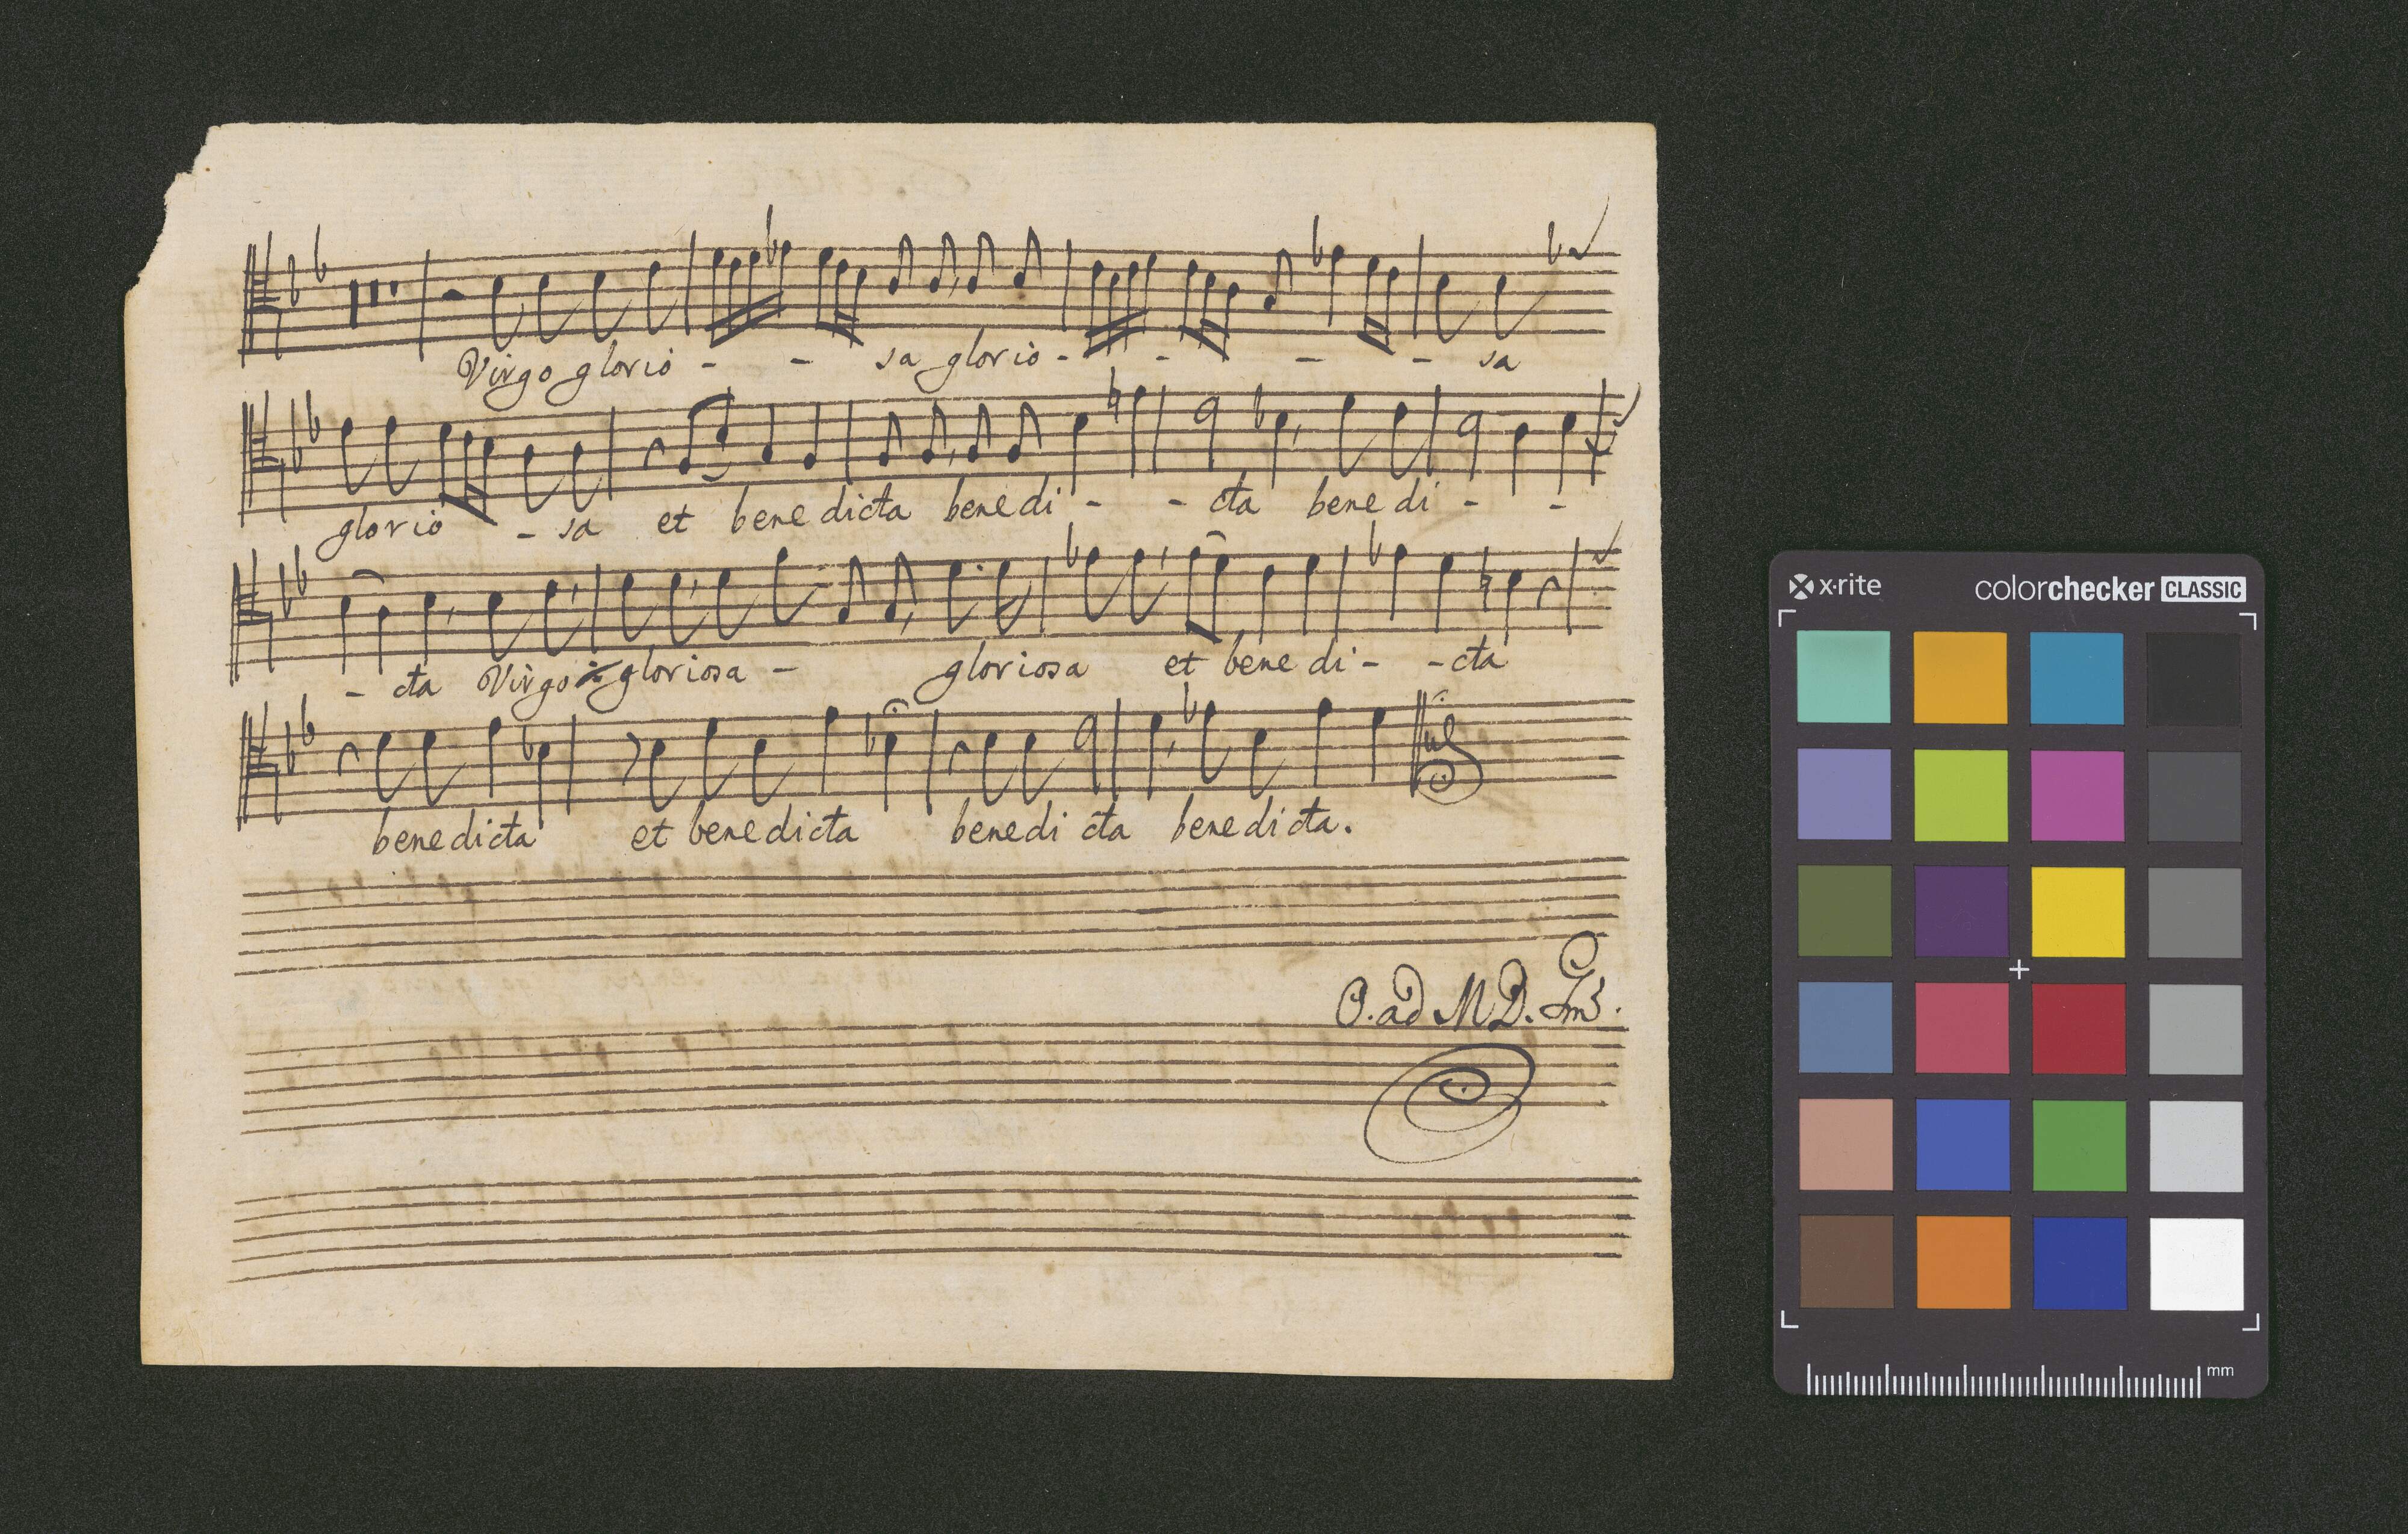 Virgo glorio - - sa glorio - - - - sa
glorio - sa et benedicta benedi - - cta benedi - -
- cta Virgo gloriosa - gloriosa et benedi - - cta
benedicta et benedicta benedicta benedicta.
O. ad M D.
x·rite colorchecker CLASSIC
mm